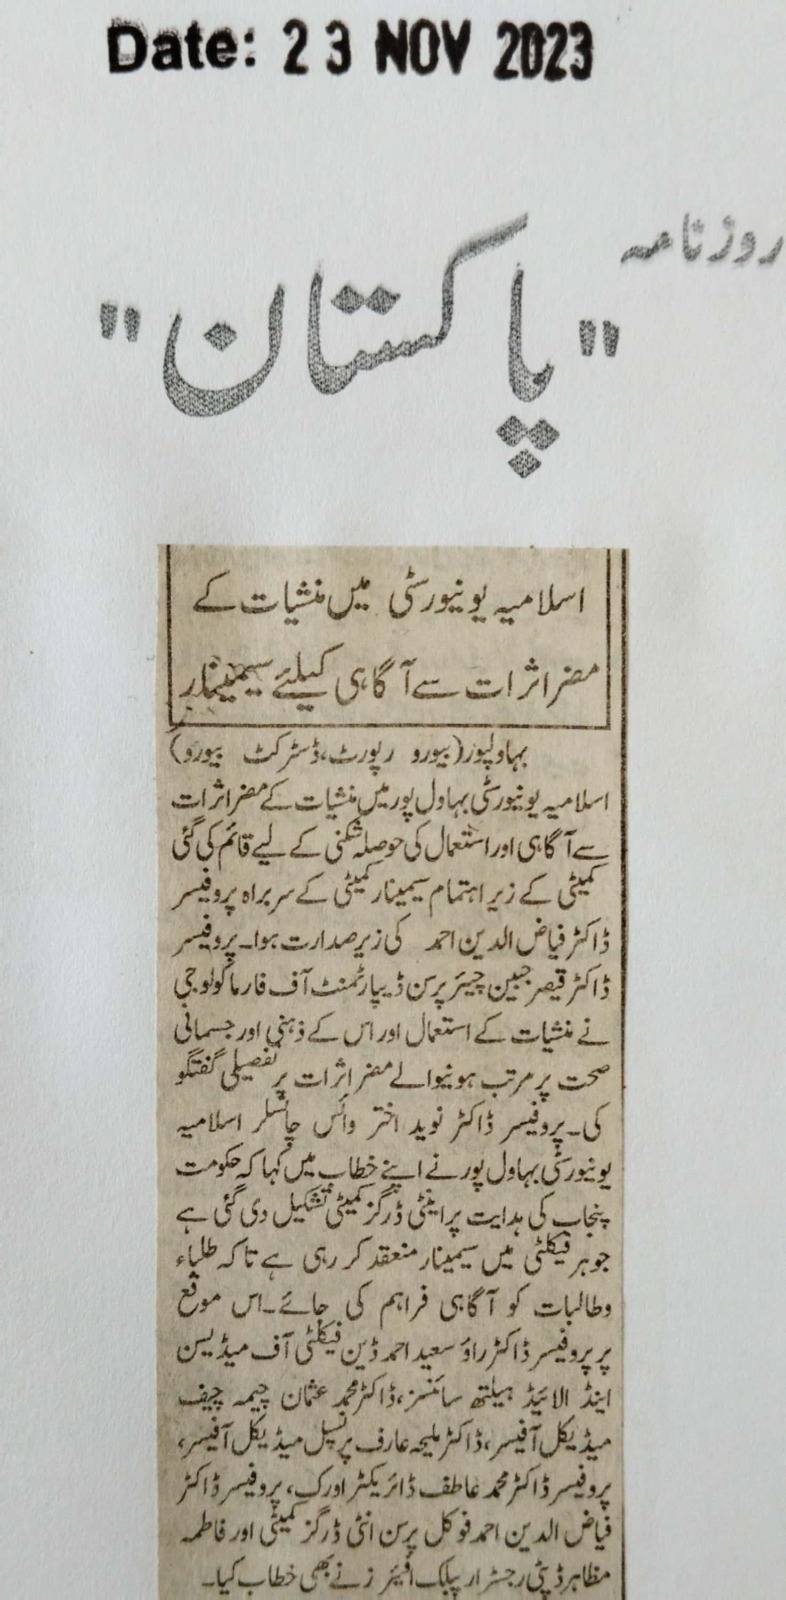 Date: 23 NOV 2023
روزنامہ
"پاکستان"
اسلامیہ یونیورسٹی میں منشیات کے
مضر اثرات سے آگاہی کیلئے سیمینار
بہاولپور(بیورو رپورٹ،ڈسٹرکٹ بیورو)
اسلامیہ یونیورسٹی بہاول پور میں منشیات کے مضر اثرات
سے آگاہی اور استعمال کی حوصلہ شکنی کے لیے قائم کی گئی
کمیٹی کے زیر اہتمام سیمینار کمیٹی کے سربراہ پروفیسر
ڈاکٹر فیاض الدین احمد کی زیر صدارت ہوا۔ پروفیسر
ڈاکٹر قیصر جبین چیئر پرسن ڈیپارٹمنٹ آف فارماکولوجی
نے منشیات کے استعمال اور اس کے ذہنی اور جسمانی
صحت پر مرتب ہونیوالے مضر اثرات پر تفصیلی گفتگو
کی۔ پروفیسر ڈاکٹر نوید اختر وائس چانسلر اسلامیہ
یونیورسٹی بہاول پور نے اپنے خطاب میں کہا کہ حکومت
پنجاب کی ہدایت پر اینٹی ڈرگز کمیٹی تشکیل دی گئی ہے
جو ہر فیکلٹی میں سیمینار منعقد کر رہی ہے تاکہ طلباء
وطالبات کو آگاہی فراہم کی جائے۔ اس موقع
پر پروفیسر ڈاکٹر راؤ سعید احمد ڈین فیکلٹی آف میڈیسن
اینڈ الائیڈ ہیلتھ سائنسز، ڈاکٹر محمد عثمان چیمہ چیف
میڈیکل آفیسر، ڈاکٹر ملیحہ عارف پرنسپل میڈیکل آفیسر،
پروفیسر ڈاکٹر محمد عاطف ڈائریکٹر اورک، پروفیسر ڈاکٹر
فیاض الدین احمد فوکل پرسن انٹی ڈرگز کمیٹی اور فاطمہ
مظاہر ڈپٹی رجسٹرار پبلک افیئرز نے بھی خطاب کیا۔